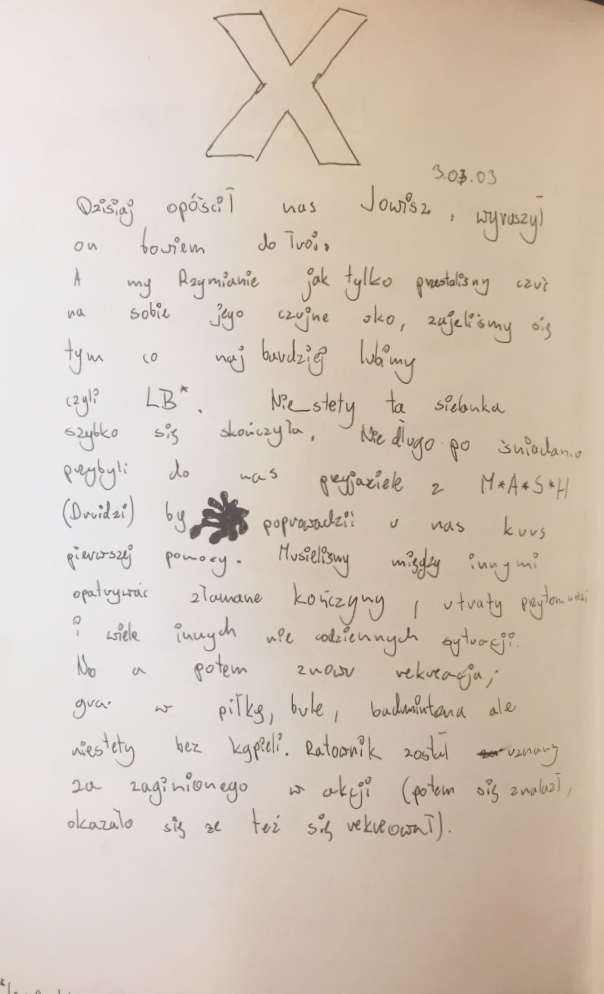 X
3.03.03
Dzisiaj opóścił nas Jowisz, wyruszył
on bowiem do Troi.
A my Rzymianie jak tylko przestaliśmy czuć
na sobie jego czujne oko, zajeliśmy się
tym co naj bardziej lubimy
czyli LB*. Nie stety ta sielanka
szybko się skończyła. Nie długo po śniadaniu
przybyli do nas przyjaciele z M*A*S*H
(Druidzi) by poprowadzić u nas kurs
pierwszej pomocy. Musieliśmy między innymi
opatrywać złamane kończyny, utraty przytomności
i wiele innych nie codziennych sytuacji.
No a potem znowu rekreacja,
gra w piłkę, bule, badmintona ale
niestety bez kąpieli. Ratownik został uznany
za zaginionego w akcji (potem się znalazł,
okazało się ze też się rekreował).